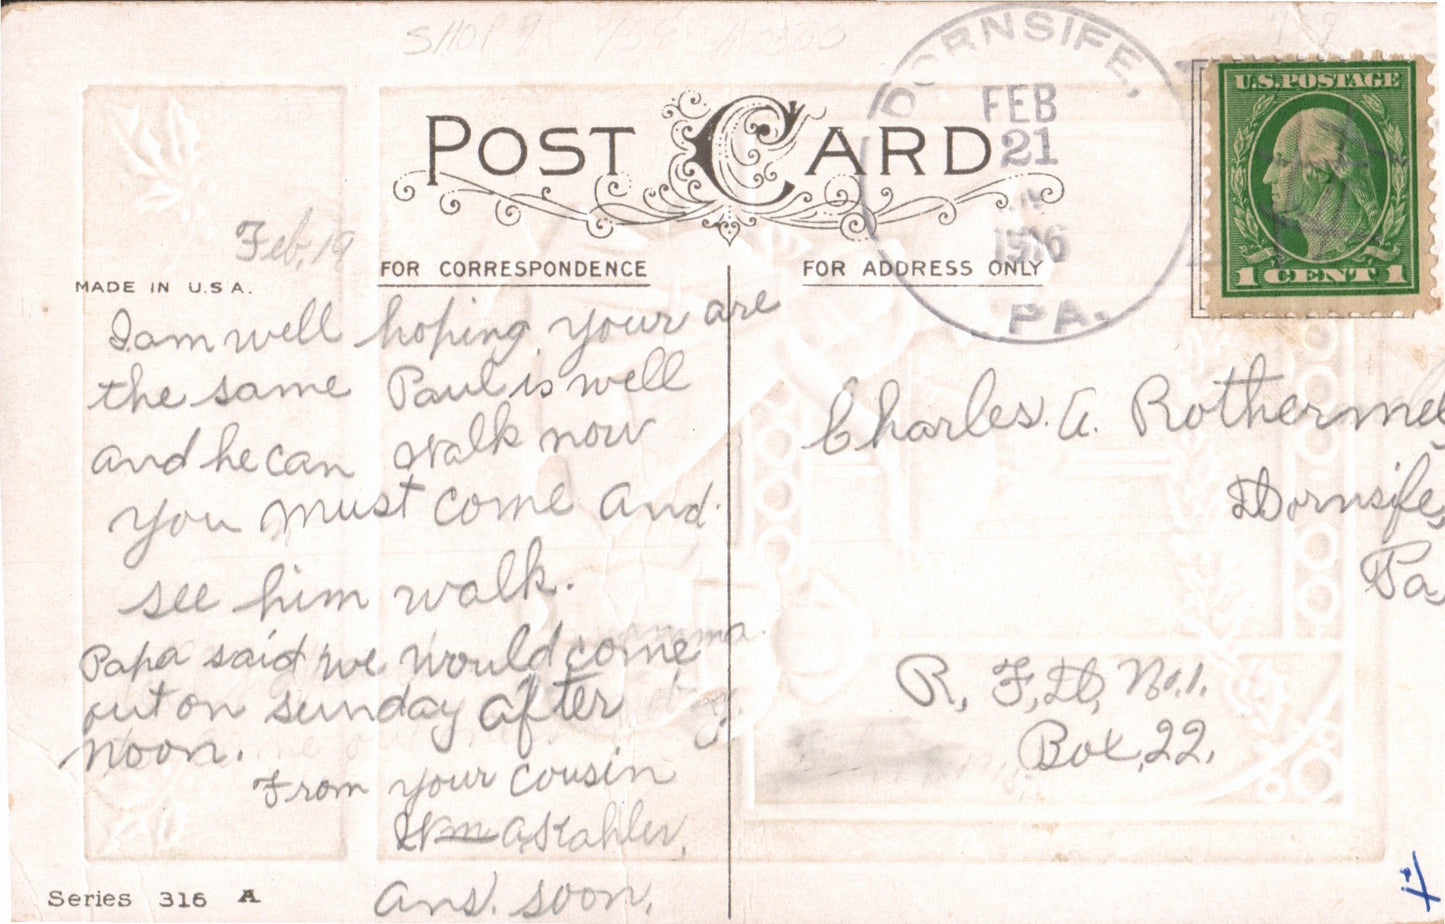 SHOP 9
DORNSIFE,
FEB
21
1916
PA.
U.S. POSTAGE
1 CENT 1
POST CARD
Feb, 19
MADE IN U.S.A.
FOR CORRESPONDENCE
FOR ADDRESS ONLY
I am well hoping your are
the same Paul is well
and he can walk now
you must come and
see him walk.
Papa said we would come
out on sunday after
noon.
From your cousin
Wm A Kahler,
ans. soon.
Charles. A. Rotherme
Dornsife,
Pa,
R, F, D, No. 1.
Box, 22.
Series 316 A